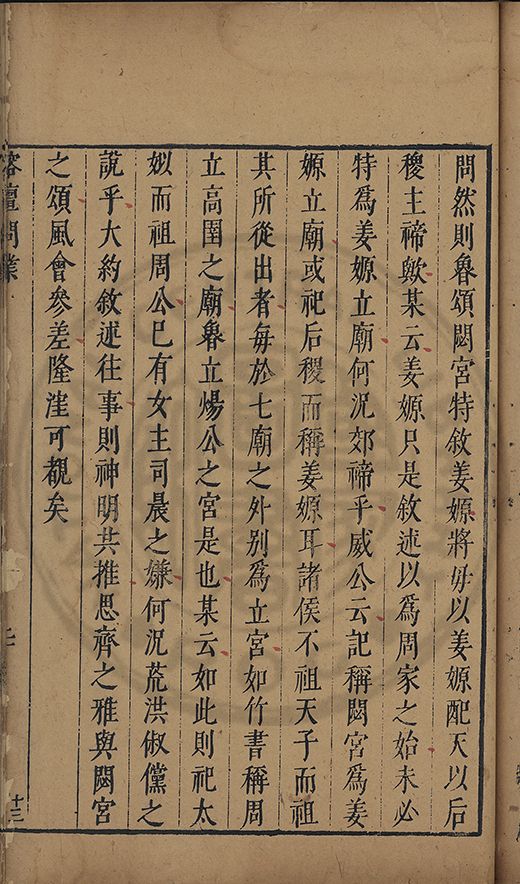 問然則魯頌閟宮特敘姜嫄將毋以姜嫄配天以后
稷主禘歟某云姜嫄只是敘述以爲周家之始未必
特爲姜嫄立廟何況郊禘乎威公云記稱閟宮爲姜
嫄立廟或祀后稷而稱姜嫄耳諸侯不祖天子而祖
其所從出者每於七廟之外別爲立宮如竹書稱周
立高圉之廟魯立煬公之宮是也某云如此則祀太
姒而祖周公已有女主司晨之嫌何況荒洪俶儻之
說乎大約敘述往事則神明共推思齊之雅與閟宮
之頌風會參差隆洼可覩矣
榕壇問業
十三